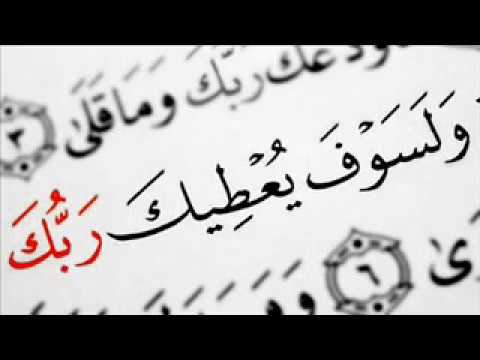 ودعك ربك وما قلى ٣
ولسوف يعطيك ربك
ى ٦ وو